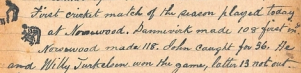 First cricket match of the season played today
at Norsewood, Dannevirk made 108 first in.
Norsewood made 118. John caught for 36. He
and Willy Turkelsen won the game, latter 13 not out.